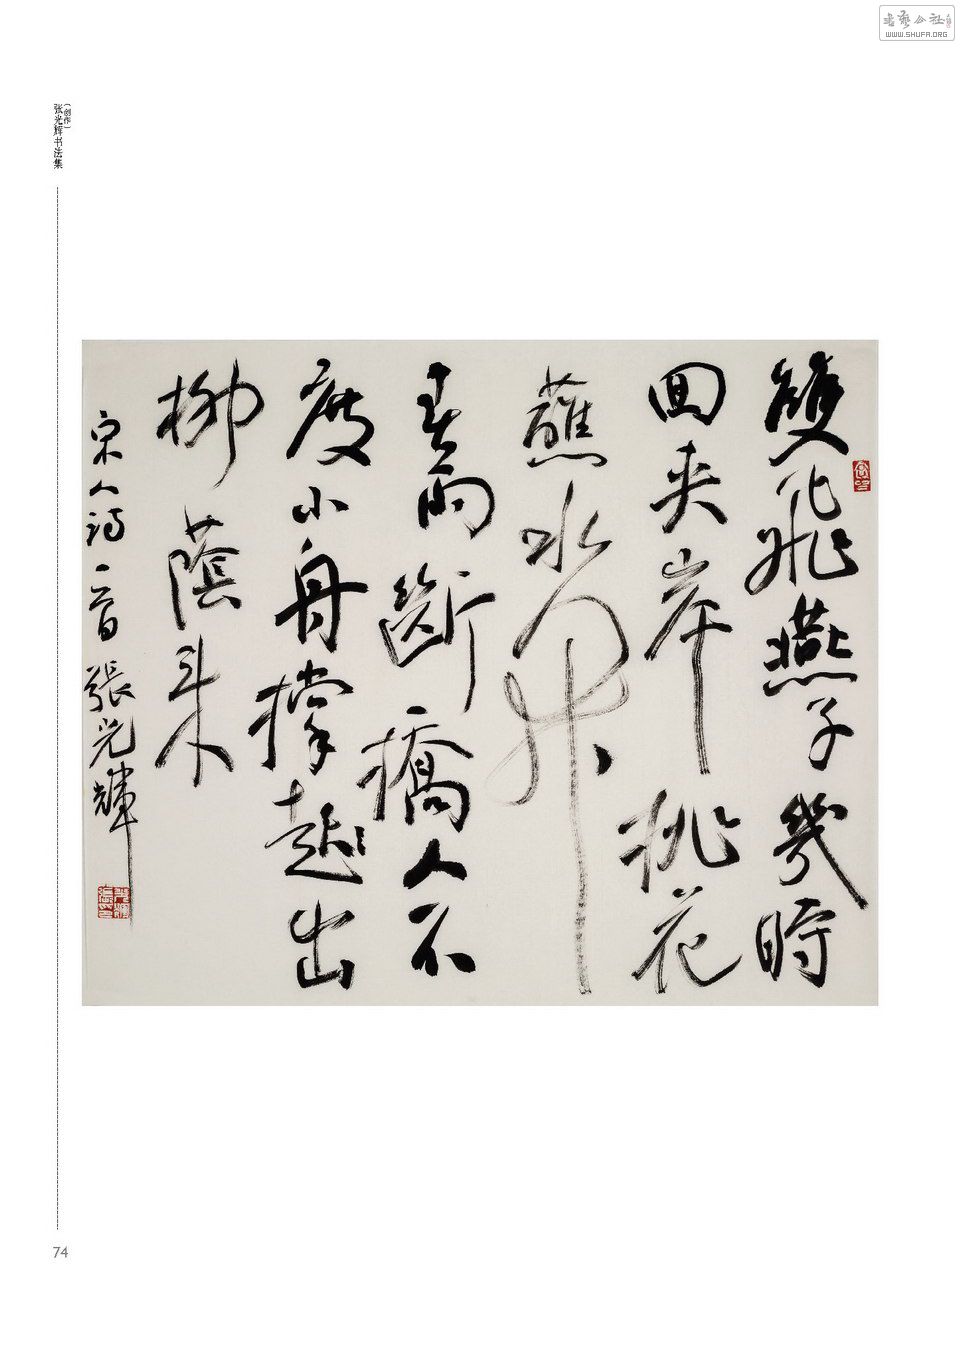 書藝公社
WWW.SHUFA.ORG
张光辉书法集
（创作）
雙飛燕子幾時
回夾岸桃花
蘸水開
春雨斷橋人不
度小舟撐出
柳蔭來
宋人詩一首張光輝
74